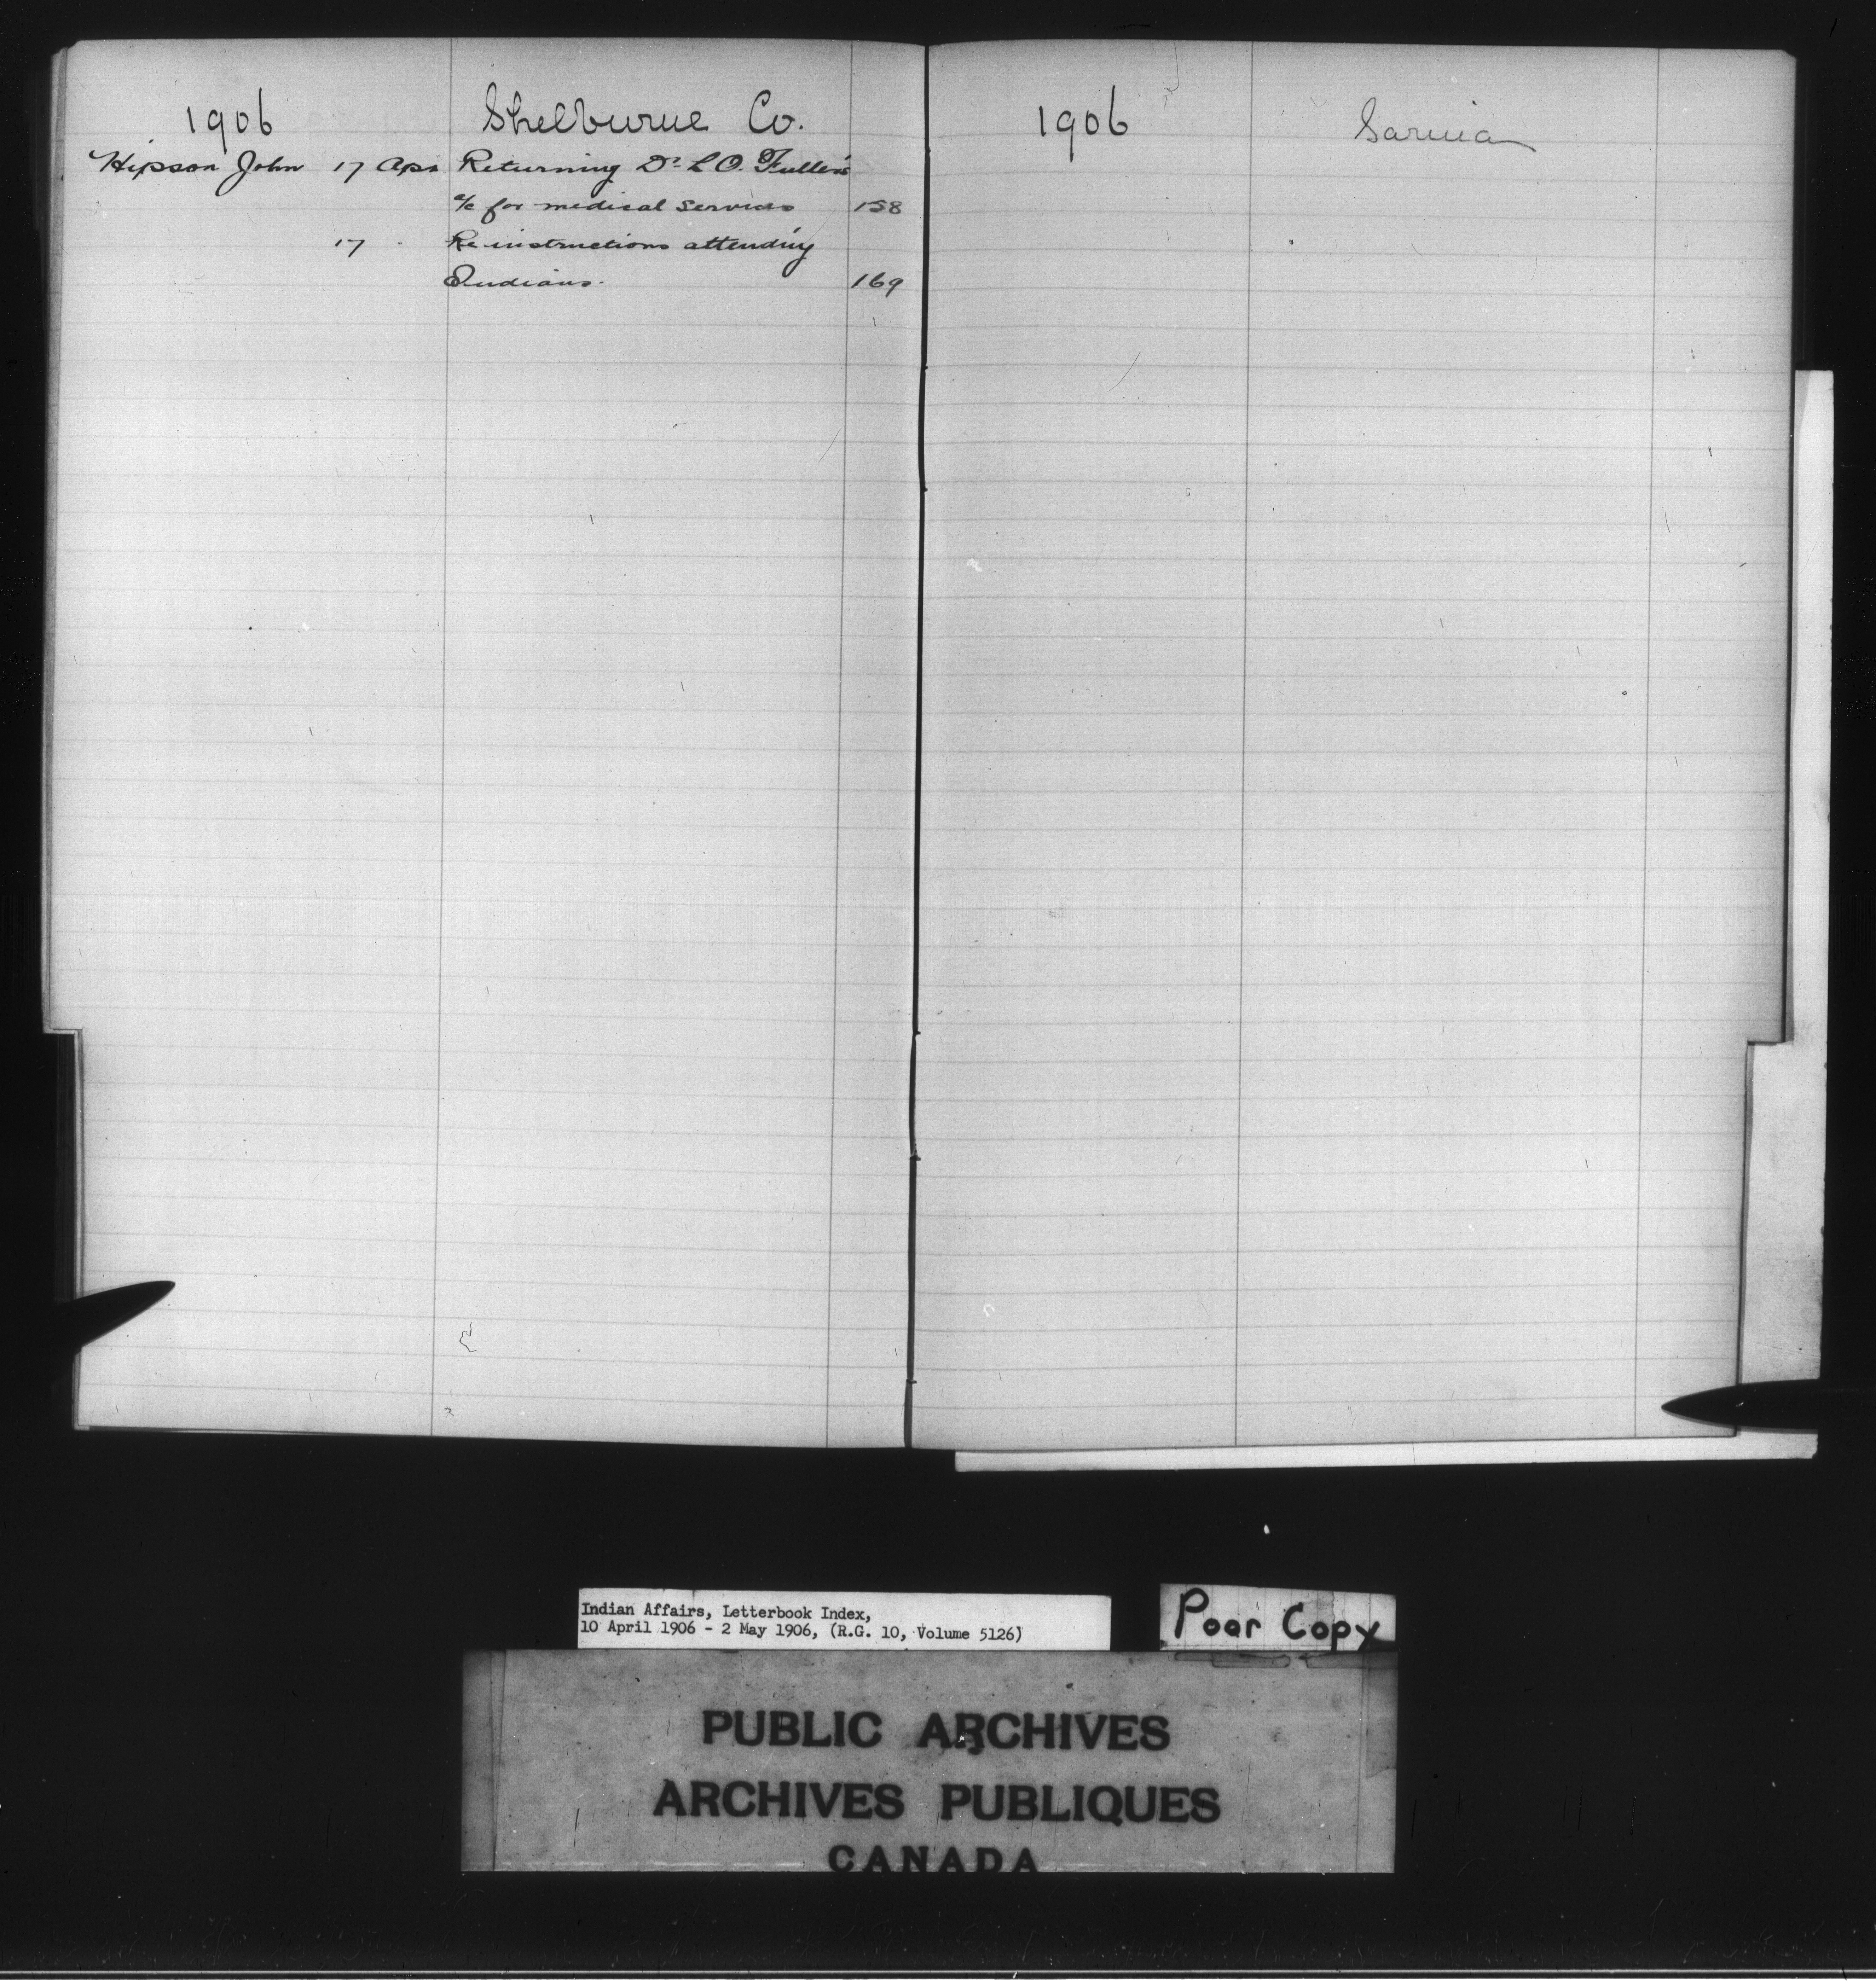 1906 Shelburne Co.
Hipson John 17 Apr Returning Dr L O. Fuller's
a/c for medical services 158
17 " Re instructions attending
Indians. 169
1906 Sarnia
Indian Affairs, Letterbook Index,
10 April 1906 - 2 May 1906, (R.G. 10, Volume 5126)
Poor Copy
PUBLIC ARCHIVES
ARCHIVES PUBLIQUES
CANADA